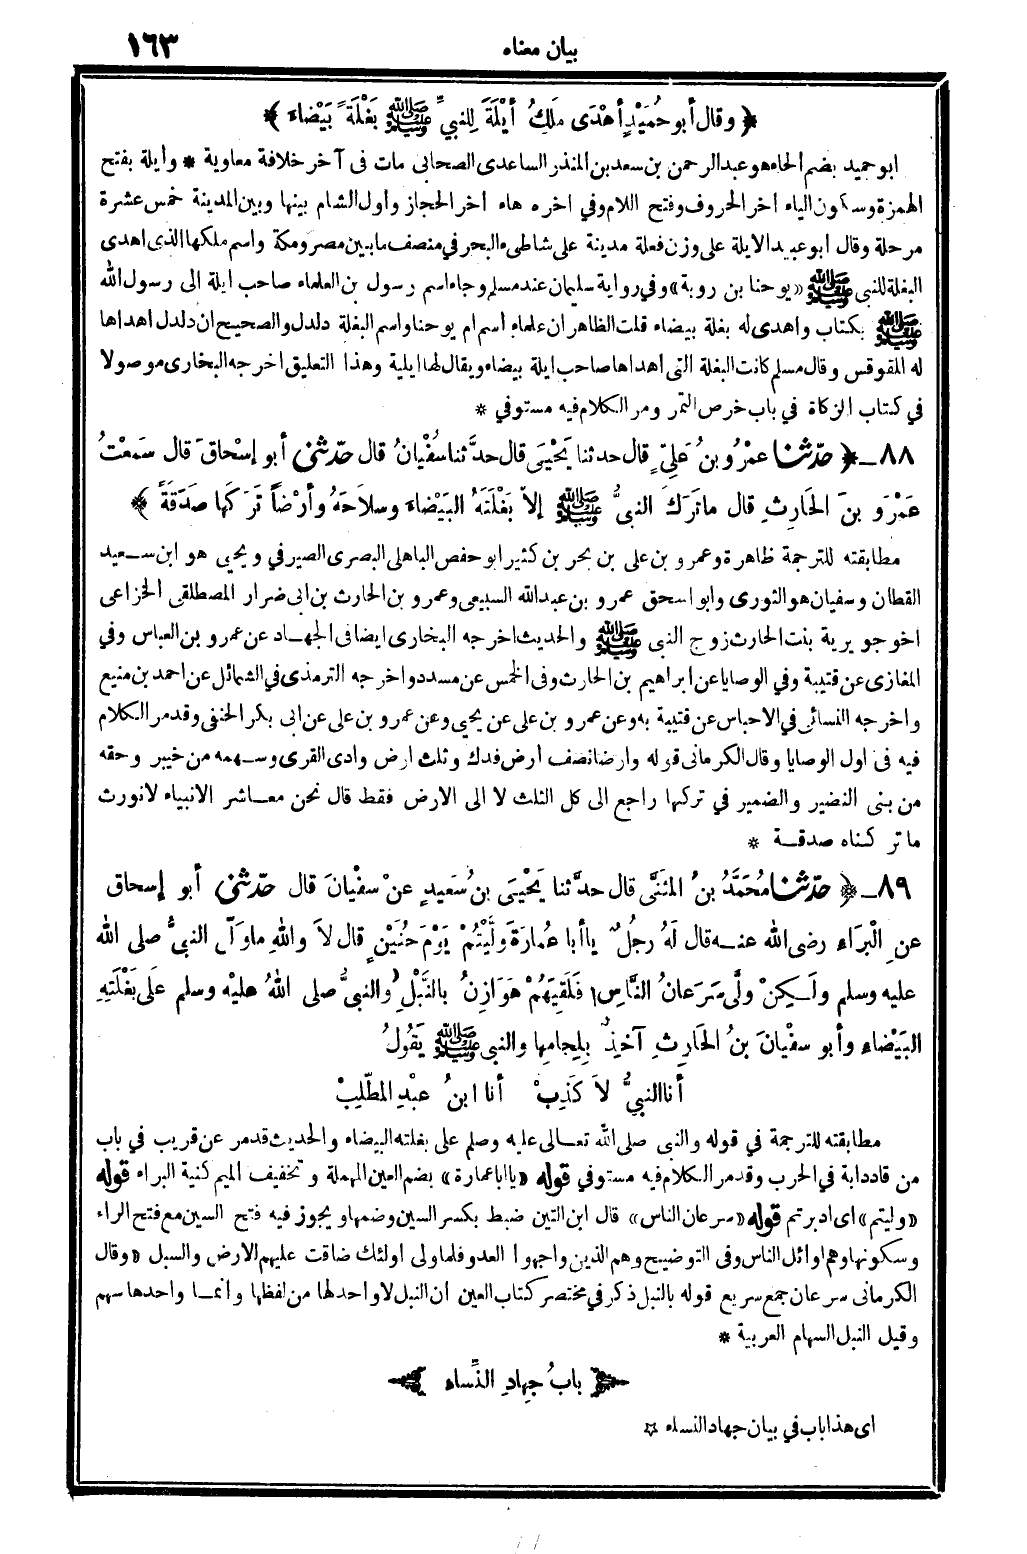 بيان معناه ١٦٣
﴿ وقال أبو حُمَيْدٍ أَهْدَى مَلِكُ أَيْلَةَ لِلنبيِّ ﷺ بَغْلَةً بَيْضَاءَ ﴾
ابو حميد بضم الحاء هو عبدالرحمن بن سعد بن المنذر الساعدى الصحابى مات فى آخر خلافة معاوية * وأيلة بفتح
الهمزة وسكون الياء آخر الحروف وفتح اللام وفي اخره هاء اخر الحجاز وأول الشام بينها وبين المدينة خمس عشرة
مرحلة وقال ابو عبيد الايلة على وزن فعلة مدينة على شاطىء البحر في منصف ما بين مصر ومكة واسم ملكها الذى اهدى
البغلة للنبى ﷺ «يوحنا بن روبة» وفي رواية سليمان عند مسلم وجاء اسم رسول بن العلماء صاحب ايلة الى رسول الله
ﷺ بكتاب واهدى له بغلة بيضاء قلت الظاهر ان علماء اسم ام يوحنا واسم البغلة دلدل والصحيح ان دلدل اهداها
له المقوقس وقال مسلم كانت البغلة التى أهداها صاحب ايلة بيضاء ويقال لها ايلية وهذا التعليق اخرجه البخارى موصولا
في كتاب الزكاة في باب خرص التمر ومر الكلام فيه مستوفي *
٨٨ ـ ﴿ حدّثنا عمْرُو بنُ علِيٍّ قال حدثنا يَحْيَى قال حدَّثنا سُفْيانُ قال حدّثنى أبو إسْحاقَ قال سَمعْتُ
عَمْرَو بنَ الحَارِثِ قال ما تَرَكَ النبىُّ ﷺ إلاّ بَغْلَتَهُ البَيْضَاءَ وسلاَحَهُ وأرْضاً تَرَكَها صَدَقَةً ﴾
مطابقته للترجمة ظاهرة وعمرو بن على بن بحر بن كثير ابو حفص الباهلى البصرى الصيرفي ويحيى هو ابن سعيد
القطان وسفيان هو الثورى وابو اسحق عمرو بن عبدالله السبيعى وعمرو بن الحارث بن ابى ضرار المصطلقى الخزاعى
اخو جويرية بنت الحارث زوج النبى ﷺ والحديث اخرجه البخارى ايضا فى الجهاد عن عمرو بن العباس وفي
المغازى عن قتيبة وفي الوصايا عن ابراهيم بن الحارث وفى الخمس عن مسدد واخرجه الترمذى في الشمائل عن احمد بن منيع
واخرجه النسائى في الاحباس عن قتيبة به وعن عمرو بن على عن يحيى وعن عمرو بن على عن ابى بكر الحنفى وقد مر الكلام
فيه فى اول الوصايا وقال الكرمانى قوله وارضا نصف أرض فدك وثلث ارض وادى القرى وسهمه من خيبر وحقه
من بنى النضير والضمير في تركها راجع الى كل الثلث لا الى الارض فقط قال نحن معاشر الانبياء لا نورث
ما تركناه صدقة *
٨٩ ـ ﴿ حدّثنا مُحَمَّدُ بنُ المُثَنَّى قال حدَّثنا يَحْيَى بنُ سَعِيدٍ عنْ سفْيانَ قال حدّثنى أبو إسحاق
عنِ الْبَرَاءِ رضى الله عنه قال لَهُ رجلٌ يا أبا عمارَةَ ولَّيْتُمْ يَوْمَ حُنَيْنٍ قال لاَ واللهِ ما ولَّى النبىُّ صلى الله
عليه وسلم ولَكِنْ ولَّى سَرَعانُ النَّاسِ فَلَقِيَهُمْ هَوَازِنُ بالنَّبْلِ والنبىُّ صلى اللهُ عليْه وسلم علَى بَغْلَتِهِ
البَيْضَاءِ وأبو سفْيانَ بنُ الحَارِثِ آخِذٌ بِلِجامِها والنبىُّ ﷺ يَقُولُ
أنا النبىُّ لاَ كَذِبْ أنا ابنُ عبْدِ المطّلِبْ
مطابقته للترجمة في قوله والنبى صلى الله تعالى عليه وسلم على بغلته البيضاء والحديث قد مر عن قريب في باب
من قاد دابة في الحرب وقد مر الكلام فيه مستوفي قوله «يا ابا عمارة» بضم العين المهملة وتخفيف الميم كنية البراء قوله
«وليتم» اى ادبرتم قوله «سرعان الناس» قال ابن التين ضبط بكسر السين وضمها ويجوز فيه فتح السين مع فتح الراء
وسكونها وهم اوائل الناس وفى التوضيح وهم الذين واجهوا العدو فلما ولى اولئك ضاقت عليهم الارض والسبل «وقال
الكرمانى سرعان جمع سريع قوله بالنبل ذكر في مختصر كتاب العين ان النبل لا واحد لها من لفظها وانما واحدها سهم
وقيل النبل السهام العربية *
بابُ جِهادِ النِّساء
اى هذا باب في بيان جهاد النساء *